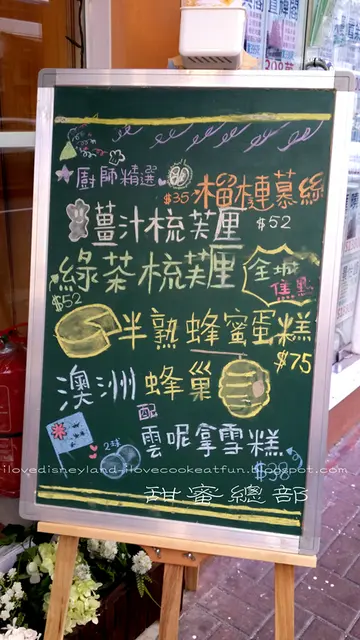 廚師精選
榴槤慕絲
$35
薑汁梳芙厘
$52
綠茶梳芙厘
$52
全城
焦點
半熟蜂蜜蛋糕
$75
澳洲蜂巢
配
雲呢拿雪糕
2球
$38
ilovedisneyland-ilovecookeatfun.blogspot.com
甜蜜總部